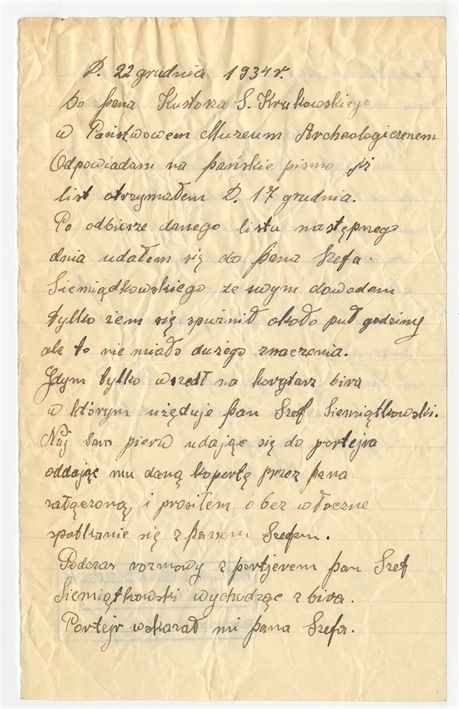 D. 22 grudnia 1934 r.
Do pana Kustosza S. Krukowskiego
w Państwowem Muzeum Archeologicznem
Odpowiadam na pańskie pismo iż
list otrzymałem D. 17 grudnia.
Po odbiorze danego listu następnego
dnia udałem się do pana Szefa.
Siemiądkowskiego ze swym dowodami
tylko żem się spuźnił około puł godziny
ale to nie miało dużego znaczenia.
Gdym tylko wszedł na korytarz bira
w którym użęduje pan Szef Siemiątkowski.
Naj sam pierw udając się do portejra
oddając mu daną kopertę przez pana
załączoną, i prosiłem o bez włoczne
spotkanie się z panem Szefem.
Podczas rozmowy z portjerem pan Szef
Siemiątkowski wychodząc z bira.
Portejr wskazał mi pana Szefa.